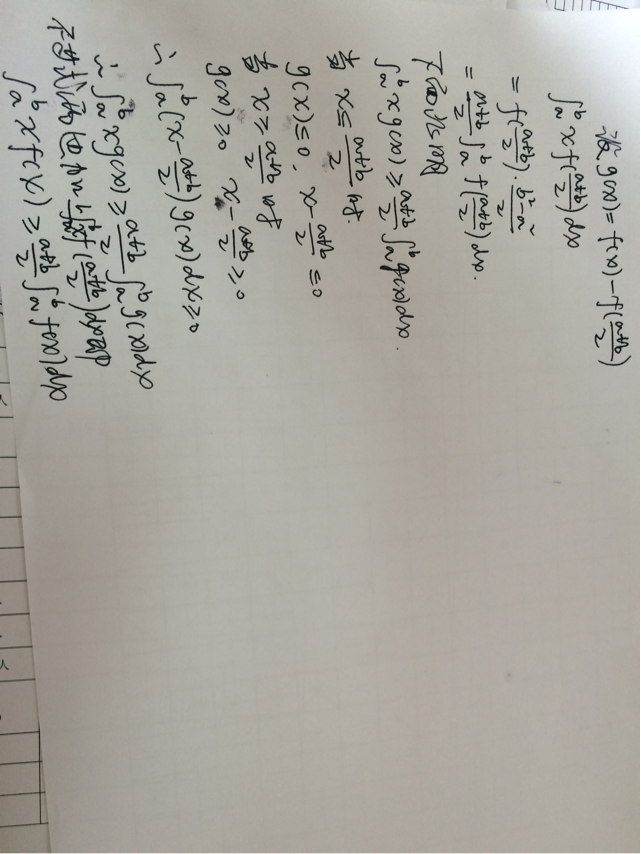 设 g(x) = f(x) - f(\frac{a+b}{2})
∫_a^b x f(\frac{a+b}{2}) dx
= f(\frac{a+b}{2}) · \frac{b²-a²}{2}
= \frac{a+b}{2} ∫_a^b f(\frac{a+b}{2}) dx.
下面证明
∫_a^b x g(x) ≥ \frac{a+b}{2} ∫_a^b g(x) dx.
当 x ≤ \frac{a+b}{2} 时.
g(x) ≤ 0, x - \frac{a+b}{2} ≤ 0
当 x ≥ \frac{a+b}{2} 时
g(x) ≥ 0 x - \frac{a+b}{2} ≥ 0
∴ ∫_a^b (x - \frac{a+b}{2}) g(x) dx ≥ 0
∴ ∫_a^b x g(x) ≥ \frac{a+b}{2} ∫_a^b g(x) dx
不等式两边加上 ∫_a^b x f(\frac{a+b}{2}) dx 即
∫_a^b x f(x) ≥ \frac{a+b}{2} ∫_a^b f(x) dx